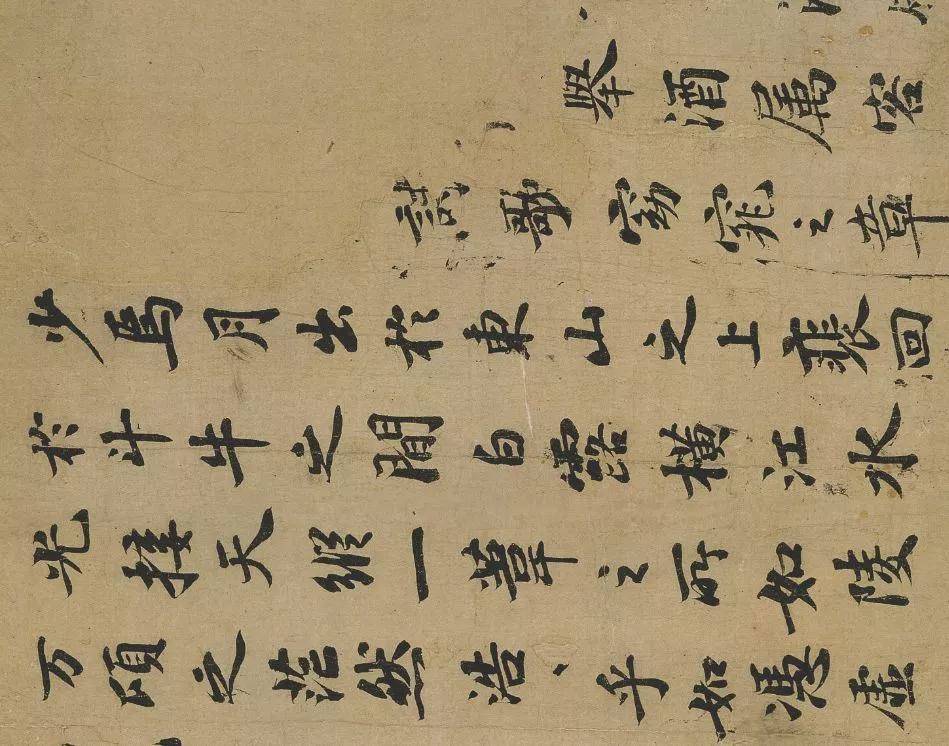 舉酒属客
詩歌窈窕之章
少焉月出於東山之上裴回
於斗牛之間白露橫江水
光接天縱一葦之所如陵
万頃之茫然浩〻乎如馮虛